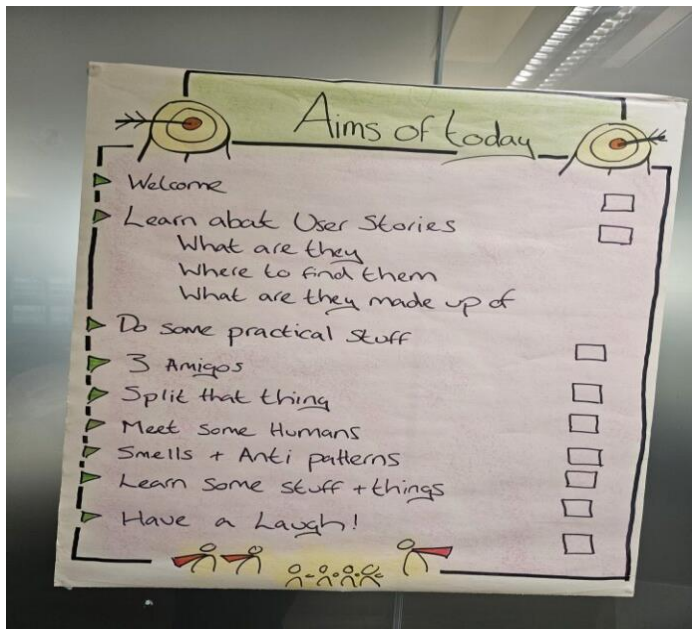 Aims of today
Welcome
Learn abat User Stories
What are they
Where to find them
What are they made up of
Do some practical stuff
3 Amigos
Split that thing
Meet some Humans
Smells + Anti patterns
Learn some stuff + things
Have a Laugh!